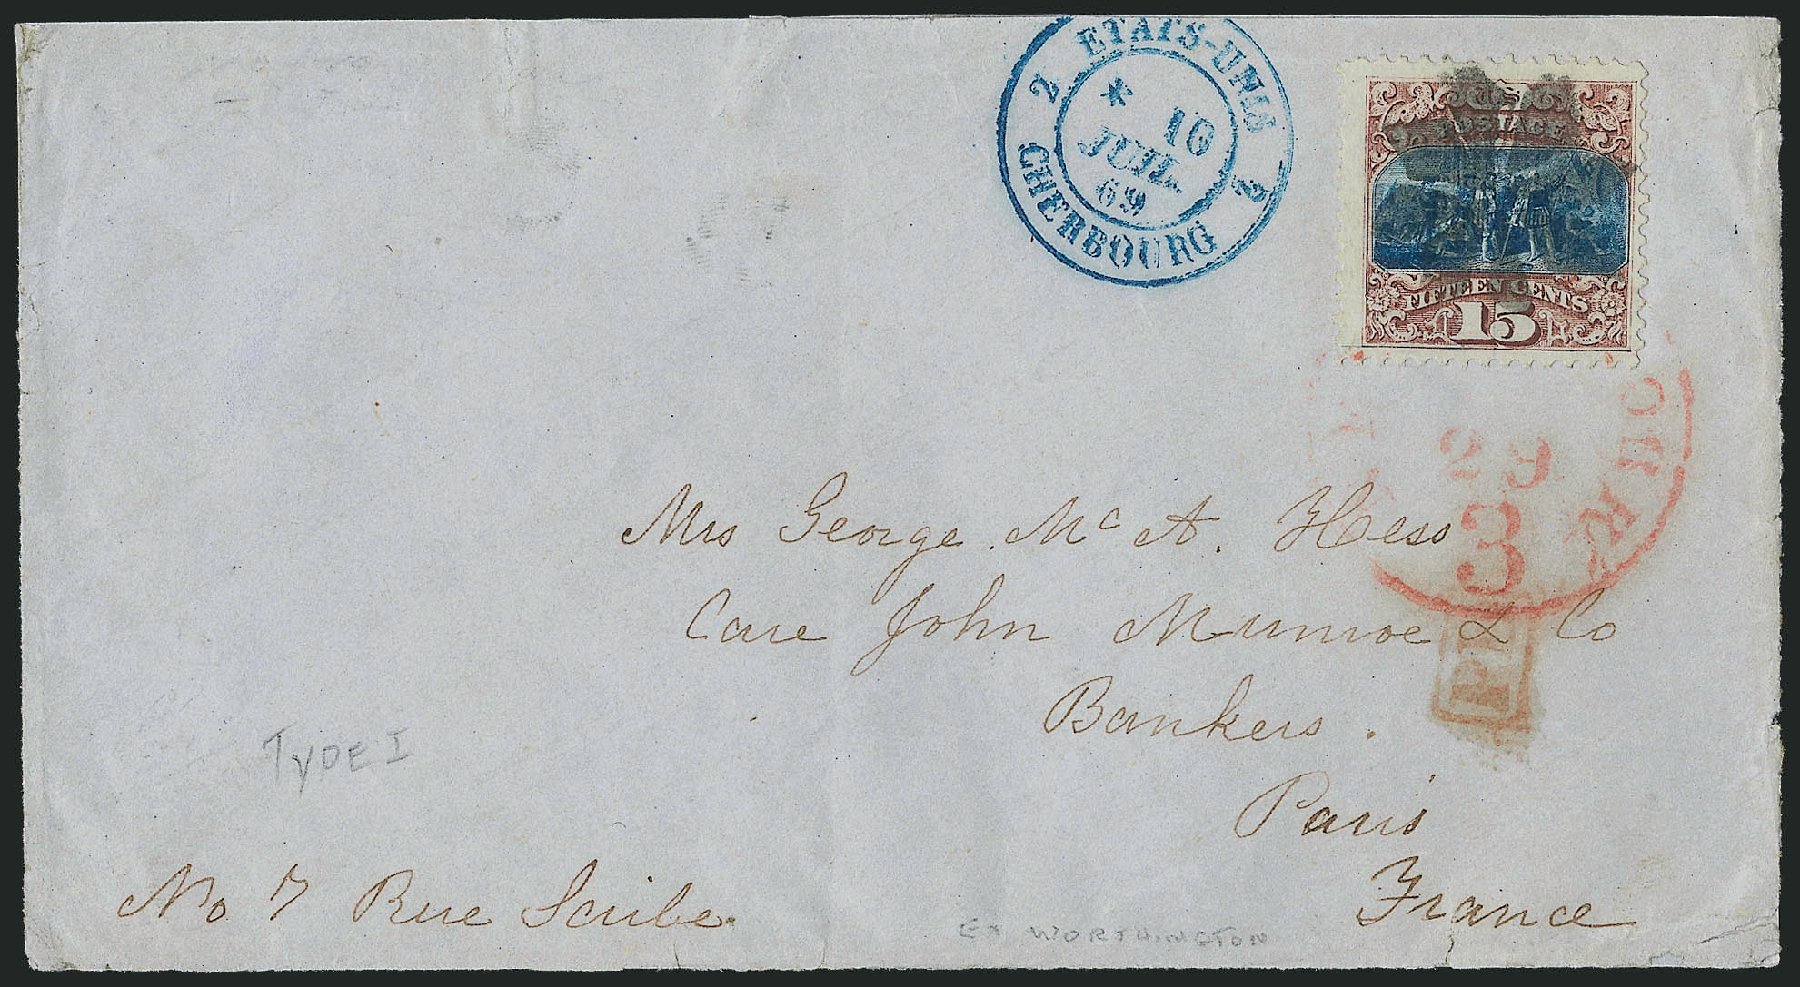 2 ETATS-UNIS 2
* 10
JUIL.
69
CHERBOURG
U.S.
POSTAGE
FIFTEEN CENTS
15
YORK
29
3
Mrs George. Mc A. Hess
Care John Munroe & Co
Bankers.
Paris
France
No 7 Rue Scribe.
TYPE I
EX WORTHINGTON